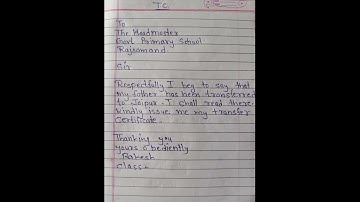 T.C.
To
The Headmaster
Govt Primary School
Rajsamand
Sir
Respectfully I beg to say that
my father has been transferred
to Jaipur. I shall read there.
kindly issue me my transfer
Certificate.
Thanking you
yours obediently
Rakesh
Class-